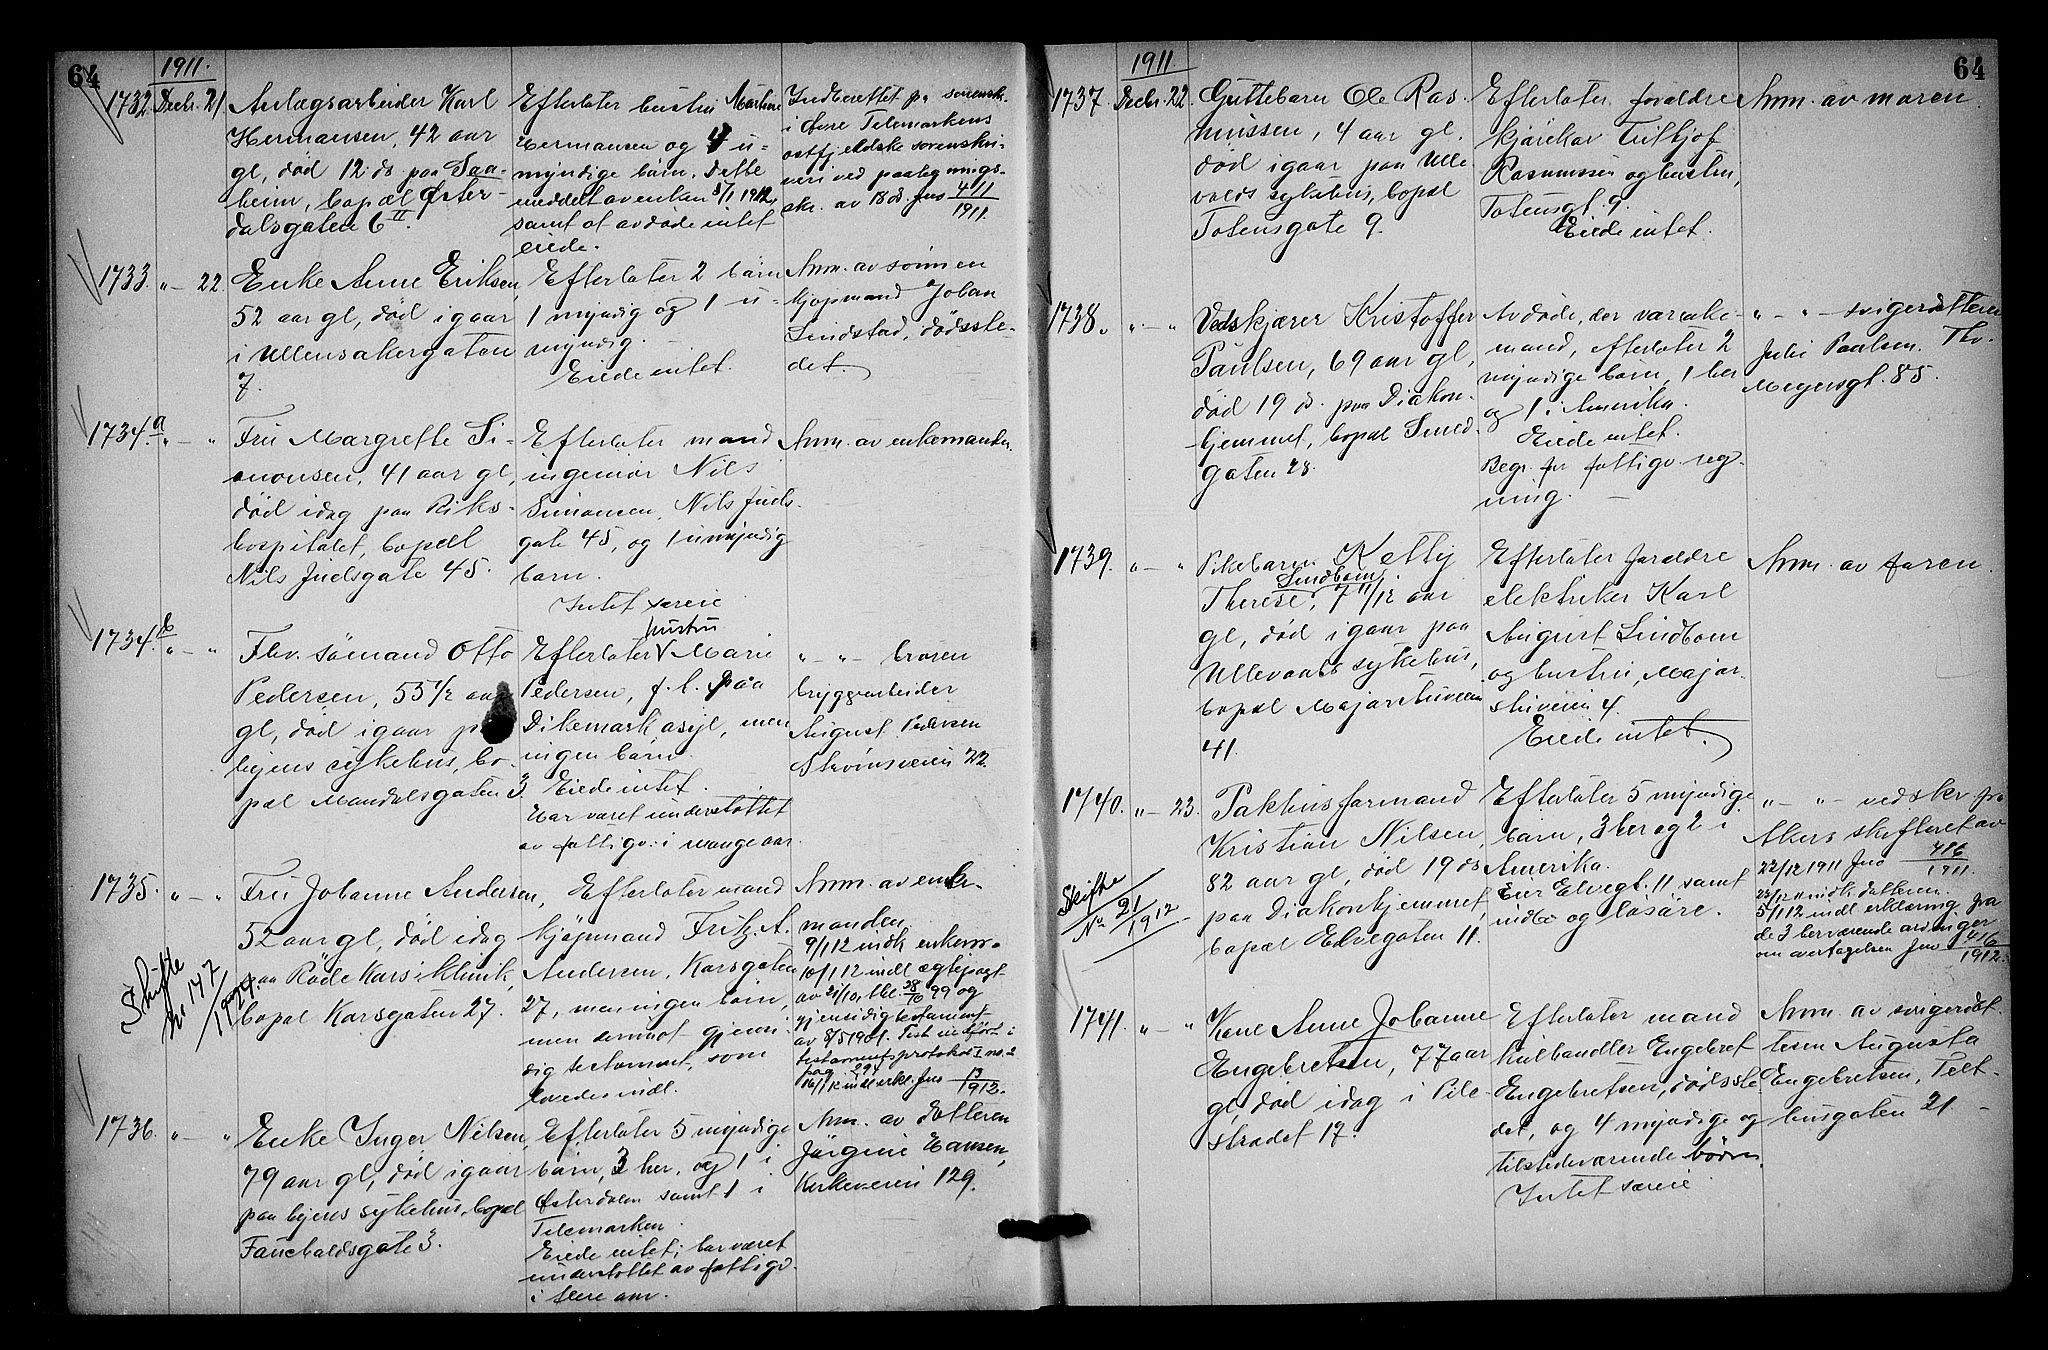 64
1911.
1732. Decbr. 21. Anlægsarbeider Karl
Hermansen, 42 aar
gl., død 12. ds. paa Saa-
heim, bopæl Øster-
dalsgaten 6 II.
Efterlater hustru Martine
Hermansen og 4 u-
myndige børn. Dette
meddelt av enken 8/1 1912,
samt at avdøde intet
eiede.
Indberettet fra sorensk.
i Øvre Telemarkens
østfjeldske sorenskri-
veri ved paategnings-
skr. av 18 ds. Jno 411
1911.
1733. " — 22. Enke Anne Eriksen,
52 aar gl., død igaar
i Ullensakergaten
7.
Efterlater 2 børn
1 myndig og 1 u-
myndig. —
Eiede intet.
Anm. av sønnen
kjøpmand Johan
Lindstad, dødsste-
det.
1734 a " — " Fru Margrethe Si-
monsen, 41 aar gl,
død idag paa Riks-
hospitalet, bopæl
Nils Juelsgate 45.
Efterlater mand
ingeniør Nils
Simonsen, Nils Juels-
gate 45, og 1 umyndig
barn.
Intet særeie
Anm. av enkemanden.
1734. b " — " Fhv. sømand Otto
Pedersen, 55 1/2 aar
gl., død igaar paa
byens sykehus, bo-
pæl Mandalsgaten 3.
Efterlater hustru Marie
Pedersen, f. t. paa
Dikemark asyl, men
ingen børn.
Eiede intet.
Har været understøttet
av fattigv. i mange aar.
" — " — broren
bryggearbeider
August Pedersen
Strømsveien 22.
1735. " — " Fru Johanne Andersen,
52 aar gl., død idag
paa Røde Kors' klinik,
bopæl Korsgaten 27.
Skifte
No 147
1924.
Efterlater mand
kjøpmand Fritz A.
Andersen, Korsgaten
27, men ingen børn,
men derimot gjensi-
dig testament, som
lovedes indl.
Anm. av enke-
manden.
9/1 12 indk enkem.
10/1 12 indl ægtepagt
av 21/10, tbl. 28/10 99 og
gjensidig testament
av 8/5 1901. Test indført i
testamentsprotokol I no. 2
pag. 294
16/1 12 indl erkl. Jno 13
1912.
1736. " — " Enke Inger Nilsen,
79 aar gl., død igaar
paa byens sykehus, bopæl
Fauchaldsgate 3.
Efterlater 5 myndige
børn, 3 her, og 1 i
Østerdalen samt 1 i
Telemarken.
Eiede intet; har været
understøttet av fattigv.
i flere aar.
Anm. av datteren
Jørgine Hansen,
Kirkeveien 129.
64
1911.
1737 Decbr. 22. Guttebarn Ole Ras-
mussen, 4 aar gl.
død igaar paa Ulle-
volds sykehus, bopæl
Totensgate 9.
Efterlater forældre
kjørekar Tritjof
Rasmussen og hustru,
Totensgt. 9.
Eiede intet.
Anm. av moren.
1738. " — " Vedskjærer Kristoffer
Paulsen, 69 aar gl,
død 19 ds. paa Diakon-
hjemmet, bopæl Smed-
gaten 28.
Avdøde, der var enke-
mand, efterlater 2
myndige børn, 1 her
og 1 i Amerika.
Eiede intet.
Begr. for fattigv. reg-
ning. —
" — " — svigerdatteren
Julie Paulsen. Thv.
Meyersgt. 85.
1739. " — " Pikebarn Ketty
Therese Lindbom, 7 11/12 aar
gl., død igaar paa
Ullevaals sykehus,
bopæl Majorstuveien
41.
Efterlater forældre
elektriker Karl
August Lindbom
og hustru, Major-
stuveien 4.
Eiede intet.
Anm. av faren.
1740. " — 23. Pakhusformand
Kristian Nilsen,
82 aar gl., død 19 ds
paa Diakonhjemmet,
bopæl Elvegaten 11.
Skifte
No 21
1912
Efterlater 5 myndige
børn, 3 her og 2 i
Amerika.
Eier Elvegt. 11 samt
indbo og løsøre.
" — " — ved skr fra
Akers skifteret av
22/12 1911 Jno 486
1911.
23/12 11 indk. datteren.
5/1 12 indl erklæring fra
de 3 herværende arvinger
om overtagelsen Jno 416
1912.
1741. " — " Kone Anne Johanne
Engebretsen, 77 aar
gl, død idag i Pile-
strædet 17.
Efterlater mand
kulhandler Engebret
Engebretsen, dødsste-
det, og 4 myndige og
tilstedeværende børn.
Intet særeie
Anm. av svigerdat-
teren Augusta
Engebretsen, Telt-
husgaten 21. —